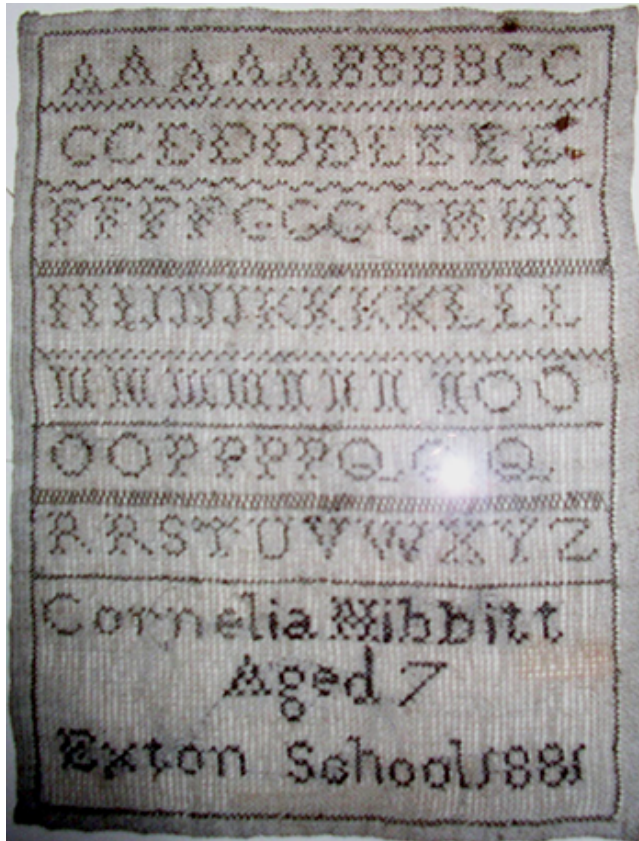 A A A A A B B B B C C
C C D D D D E E E E
F F F F G G G G H H I
K K K K L L L
M M M M N N N N O O
O O P P P P Q Q Q
R R S T U V W X Y Z
Cornelia Hibbitt
Aged 7
Exton School 1881